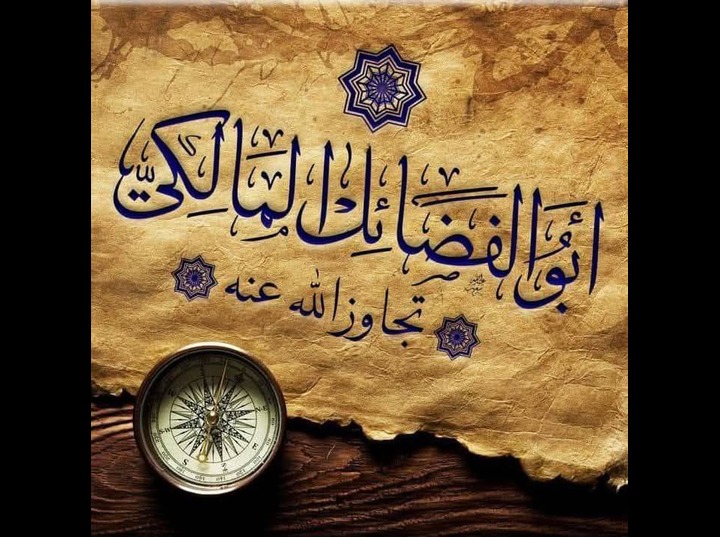 أَبُو الفَضَائِل المَالِكِيّ
تجاوز الله عنه